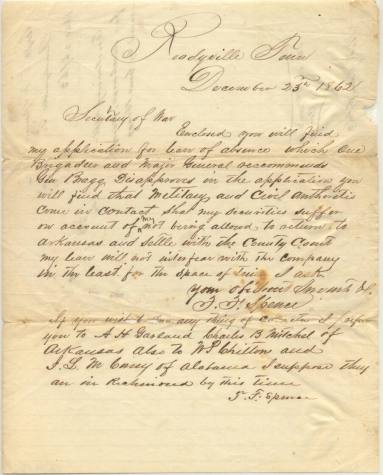 Readyville Tenn
December 23rd 1862
Secretary of War
Enclosed you will find
my application for leave of absence which
Brigadier and Major General reccommends
Gen Bragg Disapproves in the application you
will find that Military and Civil Authorities
come in contact that my securities suffer
on account of my not being allowed to return to
Arkansas and settle with the County Court
my leave will not interfear with the company
in the least for the space of time I ask
your obedient
T. F. Spence
If you wish to any thing of I refer
you to A H Garland Charles B Mitchel of
Arkansas Also to W P Chilton and
J. L. M Curry of Alabama I suppose they
are in Richmond by this time
T. F. Spence